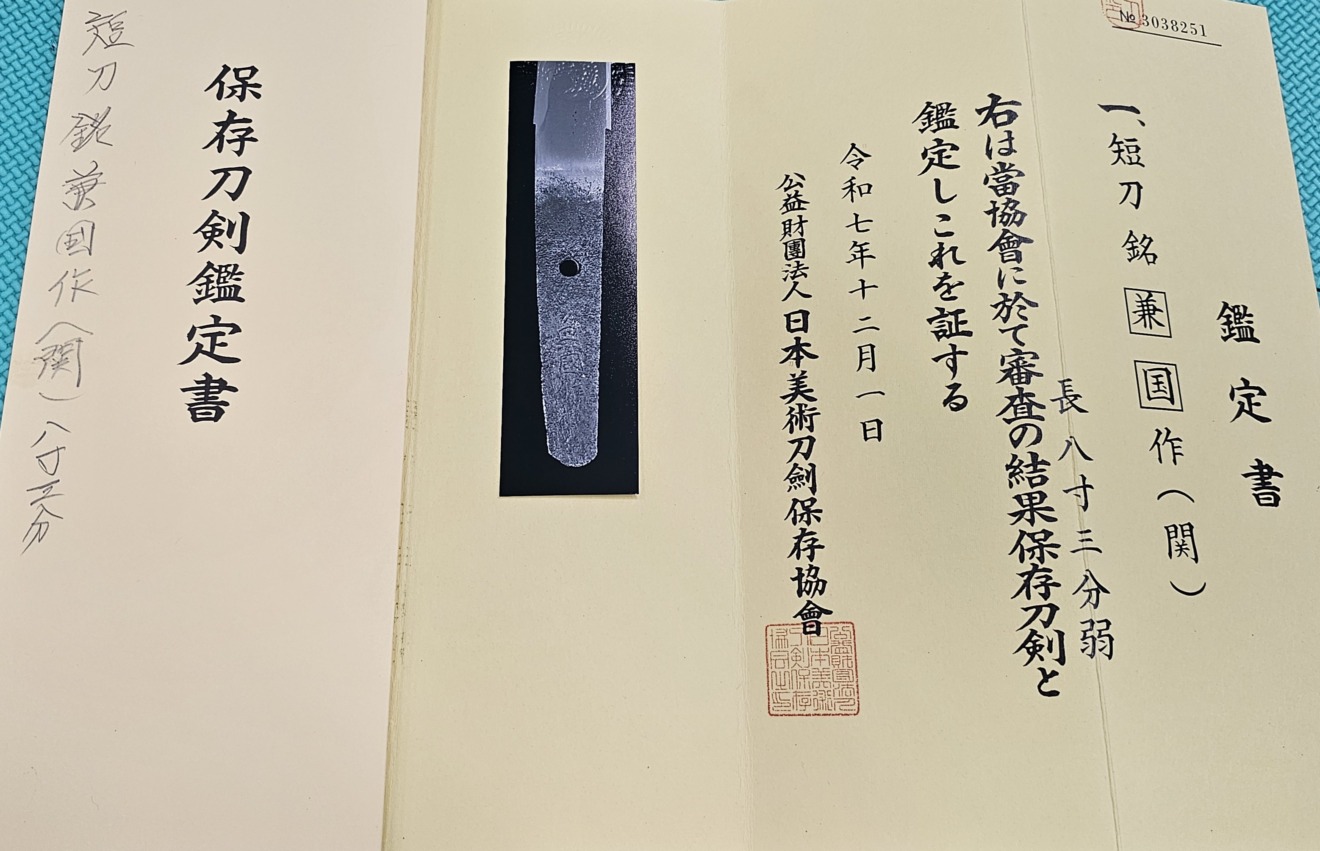 № 3038251
鑑定書
一、短刀 銘 兼国作(関)
長八寸三分弱
右は當協會に於て審査の結果保存刀剣と
鑑定しこれを証する
令和七年十二月一日
公益財團法人日本美術刀劍保存協會
保存刀剣鑑定書
短刀 銘 兼国作(関)八寸三分